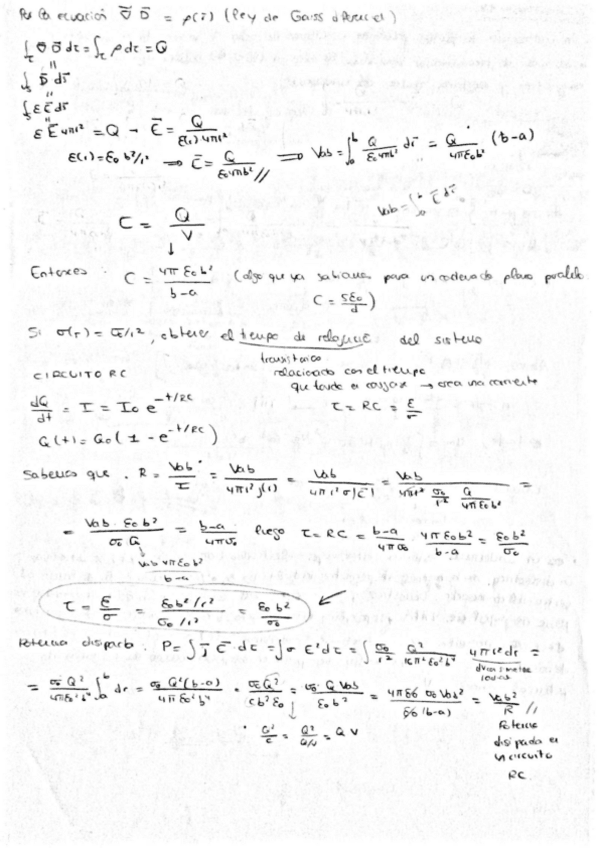 Por la ecuación ∇ D̄ = ρ(r̄) (Ley de Gauss diferencial)
∫τ ∇ D̄ dτ = ∫τ ρ dτ = Q
∫s D̄ ds̄
∫s ε Ē ds̄
ε E 4πr² = Q → Ē = Q / ε(r) 4πr²
ε(r) = ε0 b²/r² ⟹ Ē = Q / ε0 4πb² // ⟹ Vab = ∫a^b Q / ε0 4πb² dr̄ = Q / 4πε0b² (b-a)
Vab = ∫a^b Ē dr̄
C = Q / V
Entonces C = 4π ε0 b² / b-a (algo que ya sabíamos para un condensador plano paralelo
C = Sε0 / d )
Si σ(r) = σ0/r², obtener el tiempo de relajación del sistema
transitorio
CIRCUITO RC relacionado con el tiempo
que tarda en cargarse → crea una corriente
dQ/dt = I = I0 e^-t/RC τ = RC = ε/σ
Q(t) = Q0 (1 - e^-t/RC)
Sabemos que . R = Vab / I = Vab / 4πr² J(r) = Vab / 4πr² σ |Ē| = Vab / 4πr² σ0/r² Q/4πε0b² =
= Vab · ε0 b² / σ0 Q = b-a / 4πσ0 luego τ = RC = b-a / 4πσ0 · 4π ε0 b² / b-a = ε0 b² / σ0
Vab 4π ε0 b² / b-a
τ = ε / σ = ε0 b²/r² / σ0/r² = ε0 b² / σ0
Potencia disipada. P = ∫ J̄ Ē dτ = ∫ σ E² dτ = ∫ σ0/r² Q² / 16π² ε0² b⁴ 4πr² dr =
= σ0 Q² / 4πε0² b⁴ ∫a^b dr = σ0 Q² (b-a) / 4π ε0² b⁴ = σ0 Q² / C b² ε0 = σ0 Q Vab / ε0 b² = 4π ε0 σ0 Vab² / ε0 (b-a) = Vab² / R //
Q²/C = Q² / Q/V = Q V
Potencia
disipada en
un circuito
RC